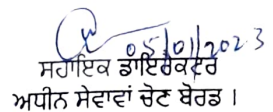 05/01/2023
ਸਹਾਇਕ ਡਾਇਰੈਕਟਰ
ਅਧੀਨ ਸੇਵਾਵਾਂ ਚੋਣ ਬੋਰਡ ।